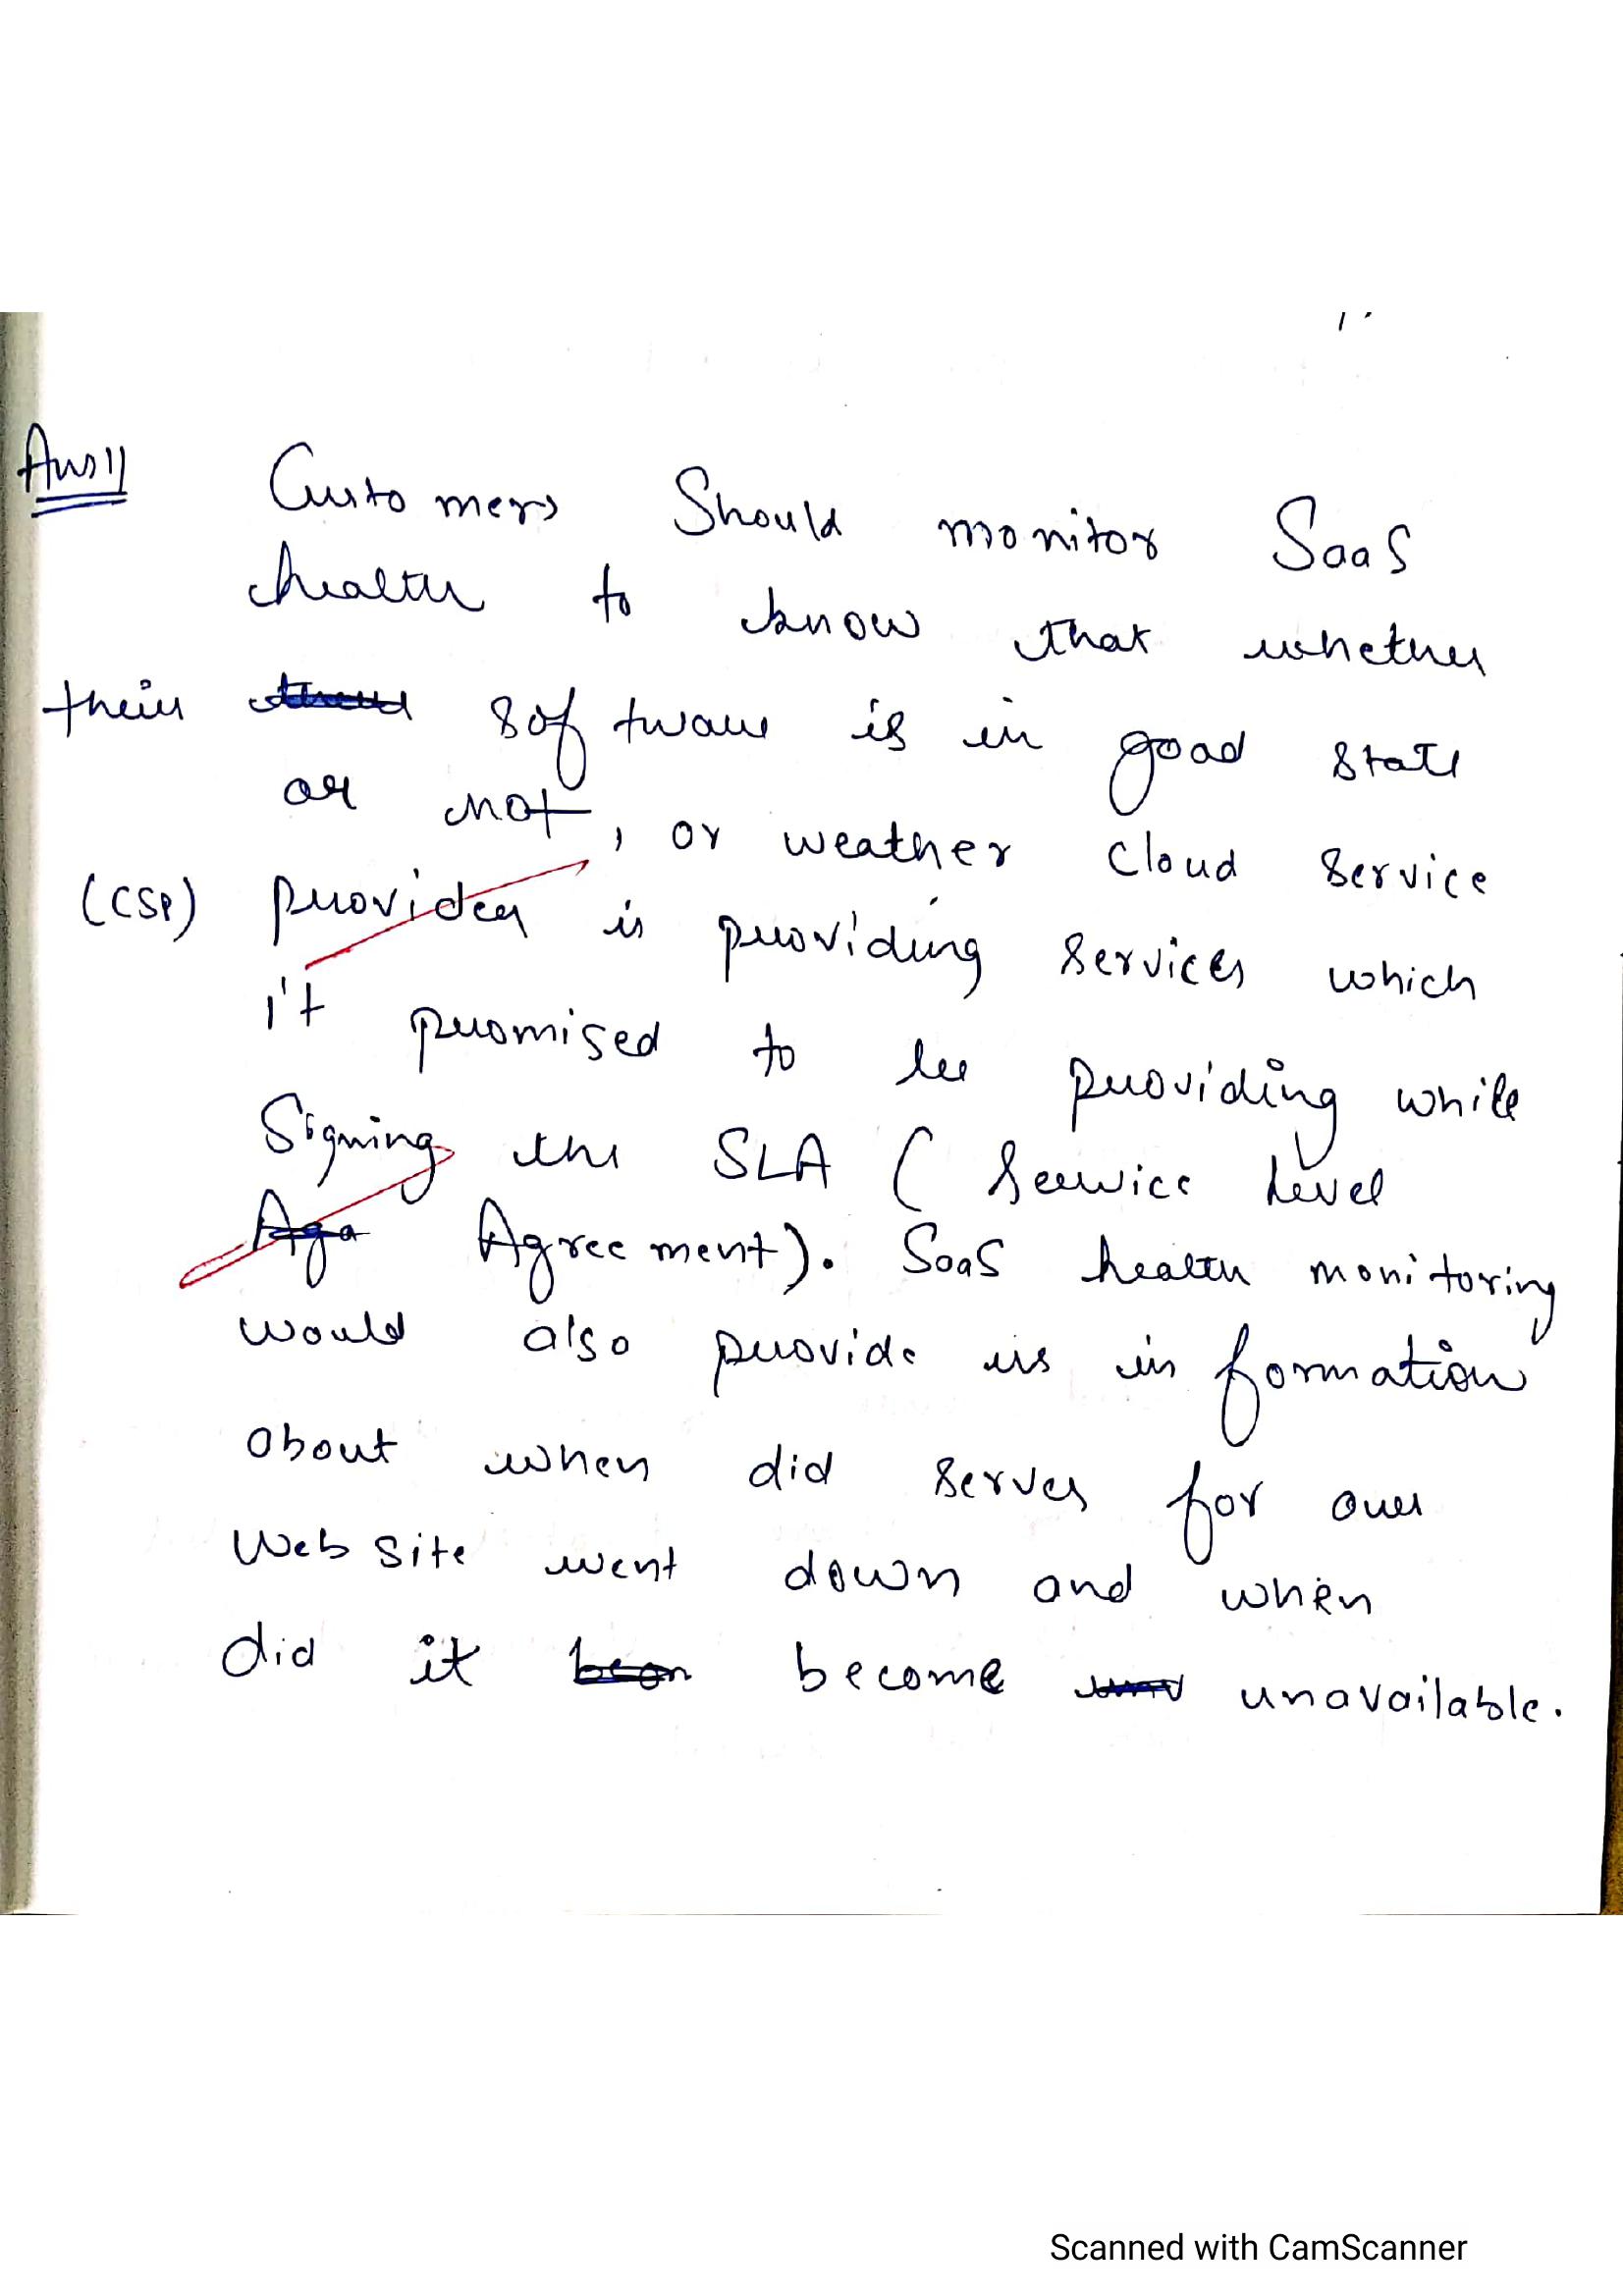 Ans 11 Customers Should monitor SaaS
health to know that whether
their software is in good state
or not, or weather Cloud Service
(CSP) provider is providing services which
it promised to be providing while
Signing the SLA (Service Level
Agreement). SaaS health monitoring
would also provide us information
about when did server for our
Website went down and when
did it become unavailable.
Scanned with CamScanner